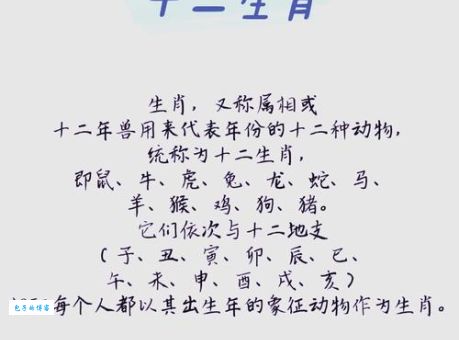 十二生肖
生肖，又称属相或
十二年兽用来代表年份的十二种动物，
统称为十二生肖，
即鼠、牛、虎、兔、龙、蛇、马、
羊、猴、鸡、狗、猪。
它们依次与十二地支
（子、丑、寅、卯、辰、巳、
午、未、申、酉、戌、亥）
每个人都以其出生年的象征动物作为生肖。